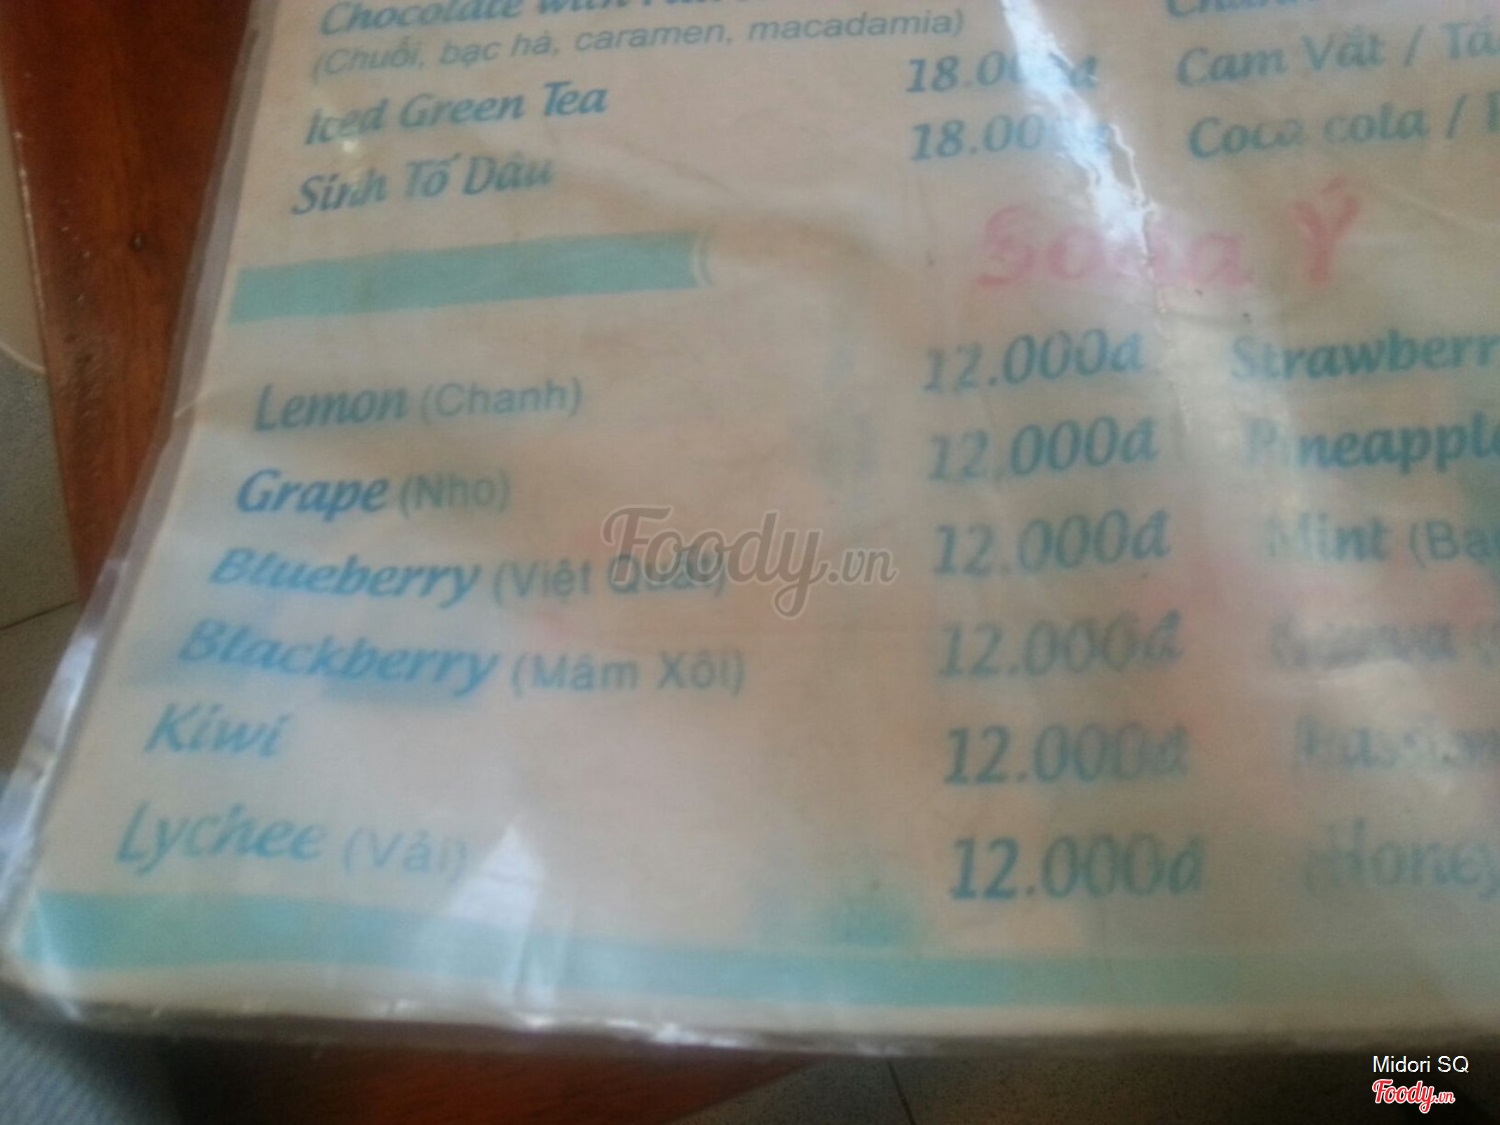 Chocolate with
(Chuối, bạc hà, caramen, macadamia)
Iced Green Tea 18.000đ Cam Vắt /
Sinh Tố Dâu 18.000đ Coca cola /
Soda Ý
Lemon (Chanh) 12.000đ Strawberr
Grape (Nho) 12.000đ Pineapple
Blueberry (Việt Quất) 12.000đ Mint
Blackberry (Mâm Xôi) 12.000đ
Kiwi 12.000đ
Lychee (Vải) 12.000đ Honey
Foody.vn
Midori SQ
Foody.vn